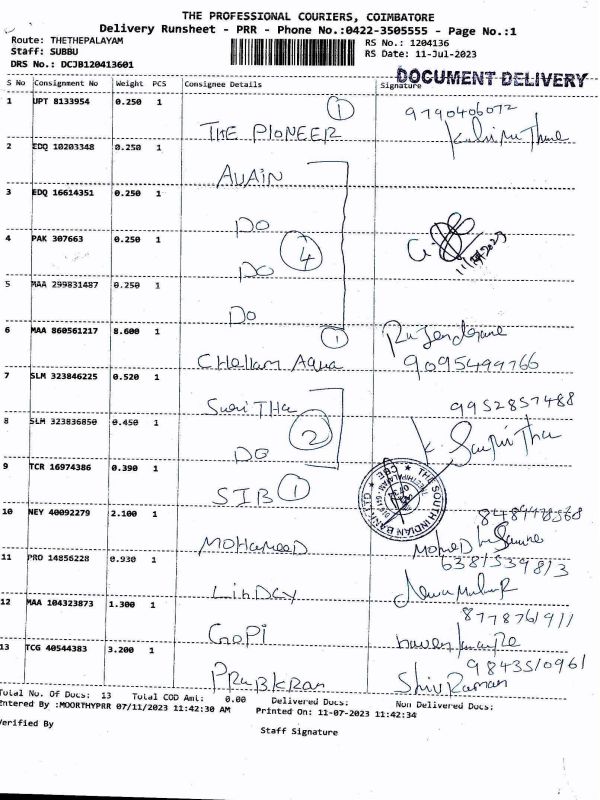 THE PROFESSIONAL COURIERS, COIMBATORE
Delivery Runsheet - PRR - Phone No.:0422-3505555 - Page No.:1
Route: THETHEPALAYAM
RS No.: 1204136
Staff: SUBBU
RS Date: 11-Jul-2023
DRS No.: DCJB120413601
DOCUMENT DELIVERY
S No Consignment No Weight PCS Consignee Details Signature
1 UPT 8133954 0.250 1 THE PIONEER 1 9790406072
2 EDQ 10203348 0.250 1 AVAIN
3 EDQ 16614351 0.250 1 DO
4 PAK 307663 0.250 1 DO 4
5 MAA 299831487 0.250 1 DO
6 MAA 860561217 8.600 1 CHellam Aqua 1 9095499766
7 SLM 323846225 0.520 1 9952857488
8 SLM 323836850 0.450 1 DO 2
9 TCR 16974386 0.390 1 SIB 1 THE SOUTH INDIAN BANK LTD
10 NEY 40092279 2.100 1 MOHAMEED
11 PRO 14856228 0.930 1
12 MAA 104323873 1.300 1 GOPI 8778761911
13 TCG 40544383 3.200 1 PRaBKRan 9843510961
Shiv Raman
Total No. Of Docs: 13 Total COD Amt: 0.00 Delivered Docs: Non Delivered Docs:
Entered By :MOORTHYPRR 07/11/2023 11:42:30 AM Printed On: 11-07-2023 11:42:34
Verified By
Staff Signature